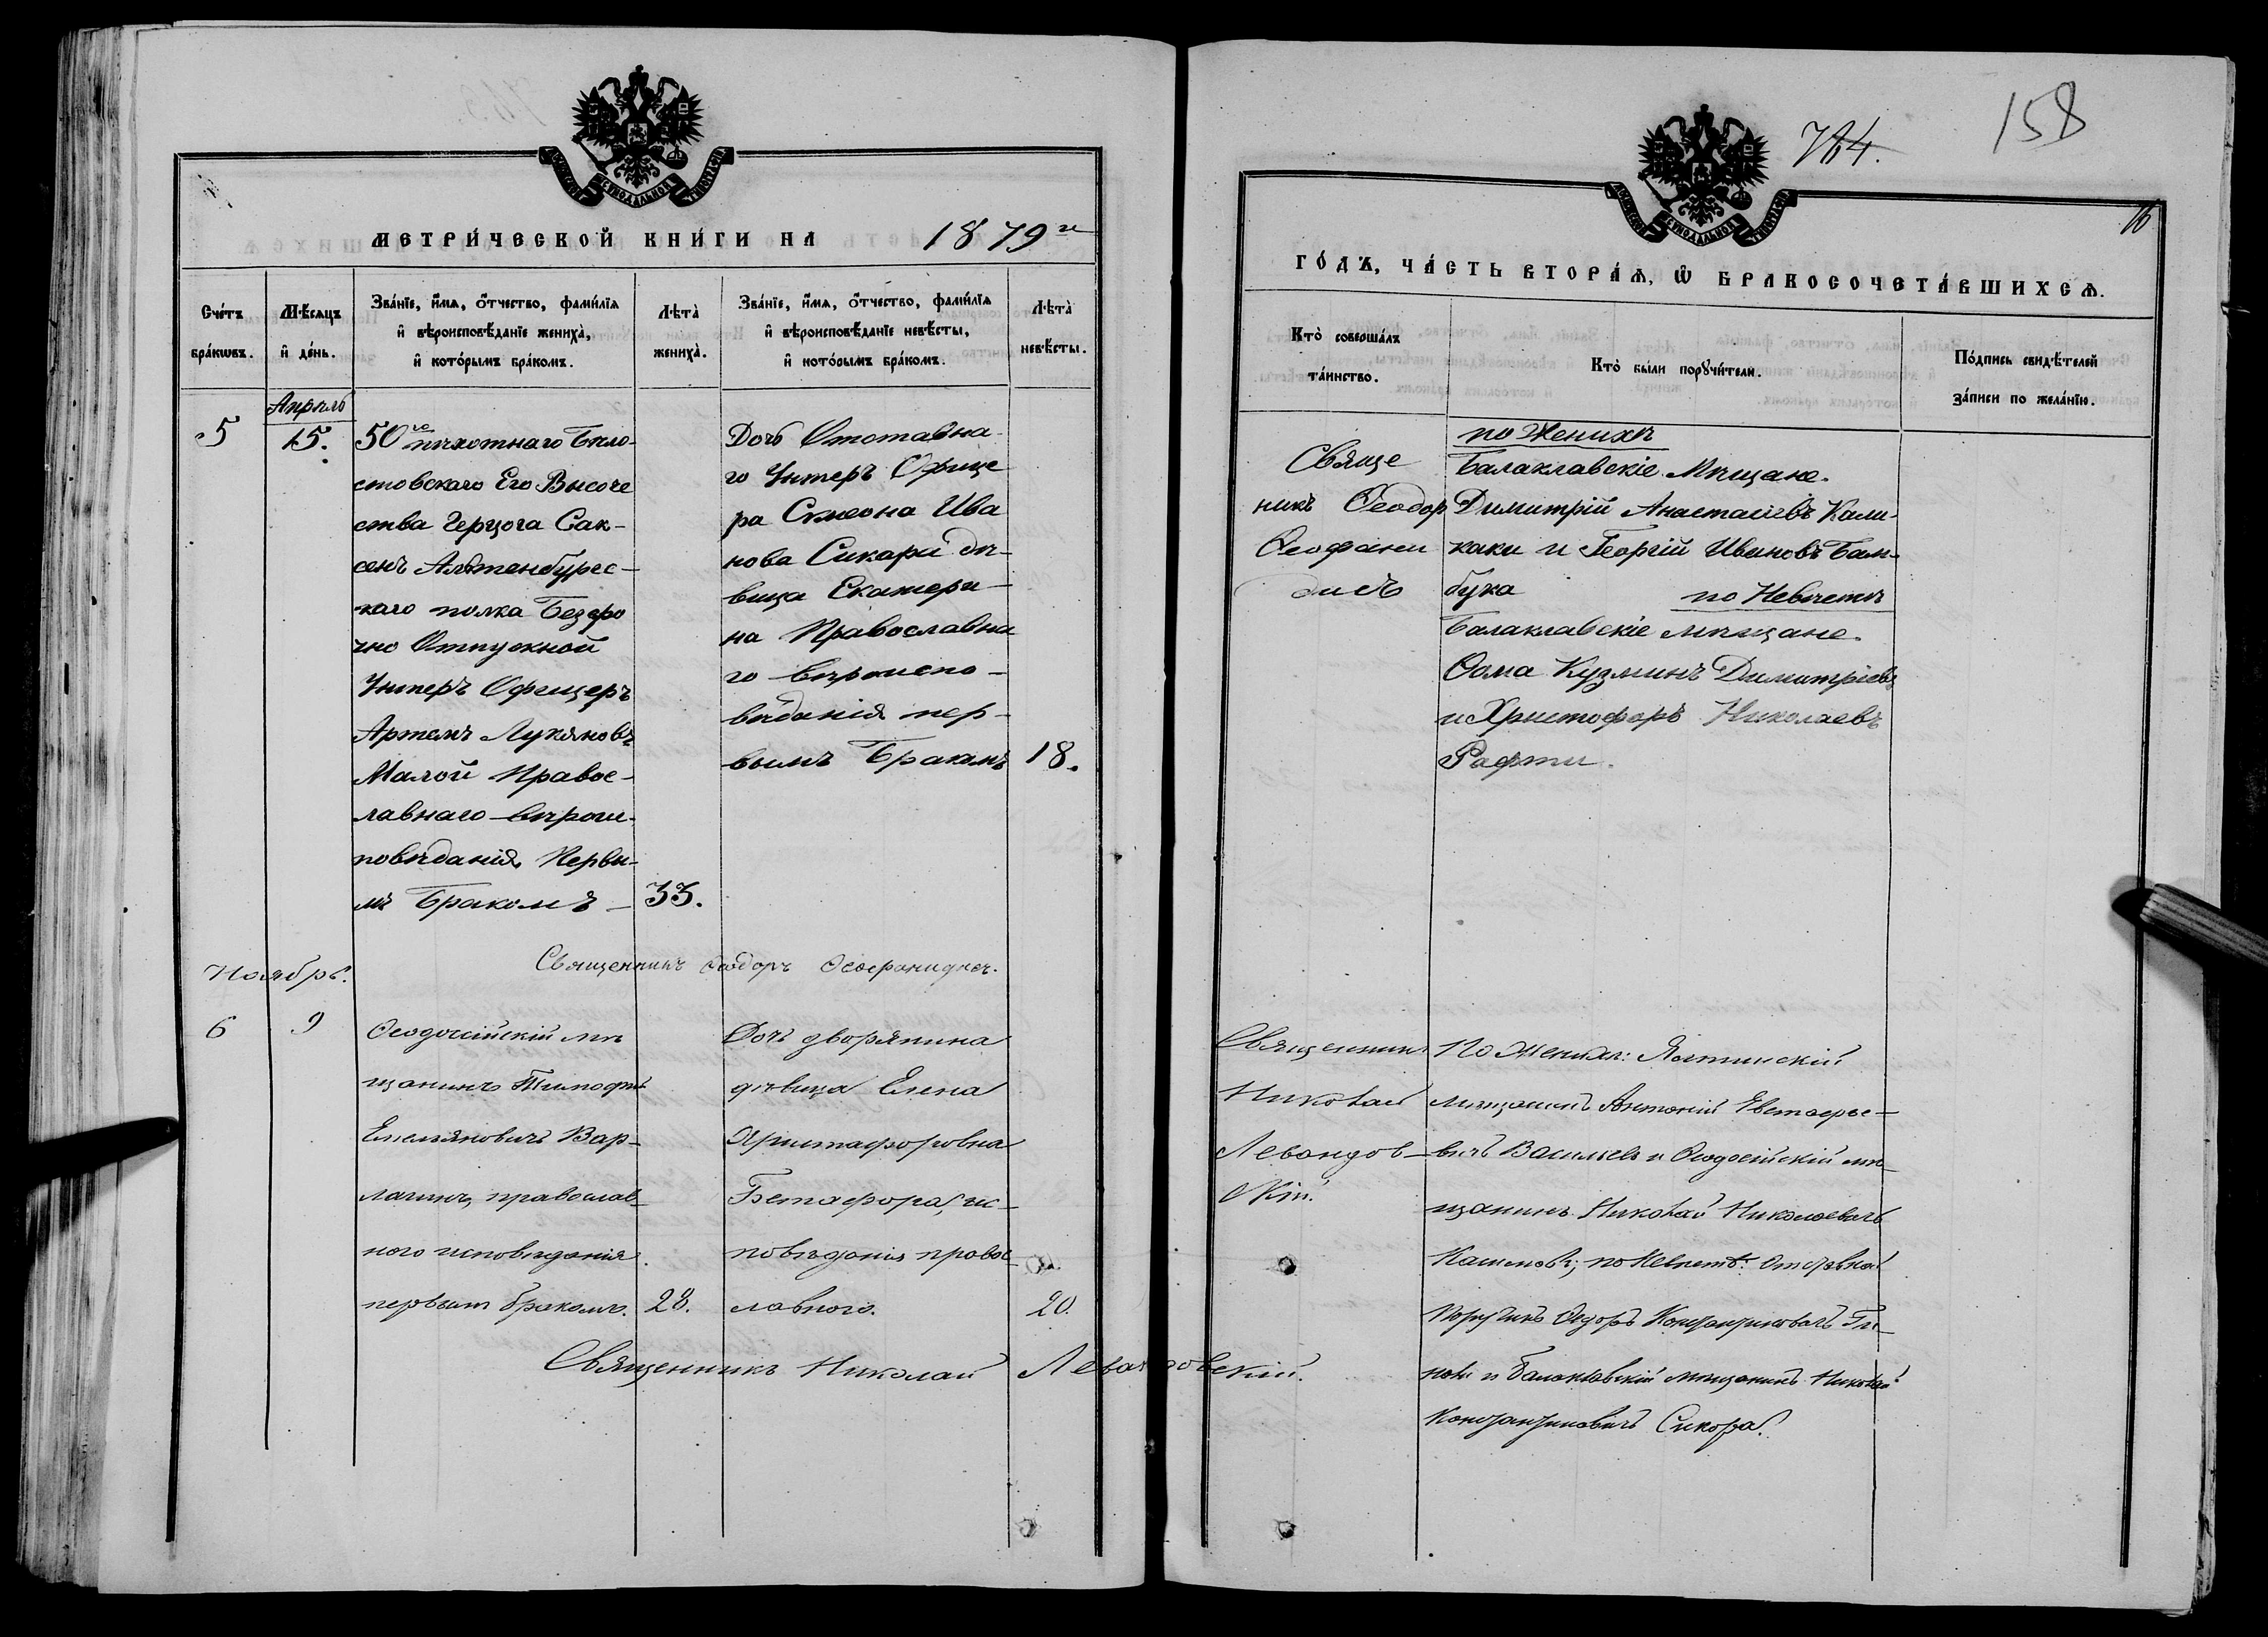 МЕТРИ́ЧЕСКОЙ КНИ́ГИ НА 1879 г
Сче́тъ бра́кѡвъ.
Мѣ́сяцъ и҆ де́нь.
Зва́нїе, и҆́мя, ѻ҆́тчество, фами́лїя и҆ вѣроисповѣ́данїе жениха̀, и҆ кото́рымъ бра́комъ.
Лѣта̀ жениха̀.
Зва́нїе, и҆́мя, ѻ҆́тчество, фами́лїя и҆ вѣроисповѣ́данїе невѣ́сты, и҆ кото́рымъ бра́комъ.
Лѣта̀ невѣ́сты.
Апрѣль
5
15.
50го пѣхотнаго Бѣло-
стовскаго Его Высоче
ства Герцога Сак-
сенъ Альтенбургс-
каго полка Безсро
чно Отпускной
Унтеръ Офицеръ
Артемъ Лукяновъ
Малой Правос-
лавнаго вѣрои-
повѣданія Первы-
мъ Бракомъ —
33.
Дочь Отставна-
го Унтеръ Офице
ра Симеона Ива
нова Сикари дѣ-
вица Екатери-
на Православна
го вѣроиспо-
вѣданія пер-
вымъ Бракомъ
18.
Священникъ Ѳеодоръ Ѳеофанидисъ.
Ноябрь.
6
9
Ѳеодосійскій мѣ
щанинъ Тимофѣй
Емельяновичъ Вар-
ламъ, православ-
наго исповѣданія
первымъ бракомъ.
28.
Дочь дворянина
дѣвица Елена
Христофоровна
Бетафора, ис-
повѣданія правос-
лавнаго.
20.
Священникъ Николай Левандовскій.
764.
158
16
ГО́ДЪ, ЧА́СТЬ ВТОРА́Я, Ѡ҆ БРАКОСОЧЕТА́ВШИХСЯ.
Кто̀ соверша́лъ та́инство.
Кто̀ бы́ли порꙋчи́тели.
По́дпись свидѣ́телей за́писи по жела́нїю.
Свяще
никъ Ѳеодор
Ѳеофани
дисъ
по Женихѣ
Балаклавскіе Мѣщане.
Димитрій Анастасіевъ Кали-
каки и Георгій Ивановъ Бам-
бука по Невѣстѣ
Балаклавскіе мѣщане.
Ѳома Кузминъ Димитріевъ
и Христофоръ Николаевъ
Рафти.
Священникъ
Николай
Левандов-
скій.
По Женихѣ: Ялтинскій
мѣщанинъ Антоній Евстафье-
вичъ Васильевъ и Ѳеодосійскій мѣ-
щанинъ Николай Николаевичъ
по Невѣстѣ: Отставной
Поручикъ Ѳедоръ Константиновичъ Ги-
и Балаклавскій мѣщанинъ Николай
Константиновичъ Сикора.